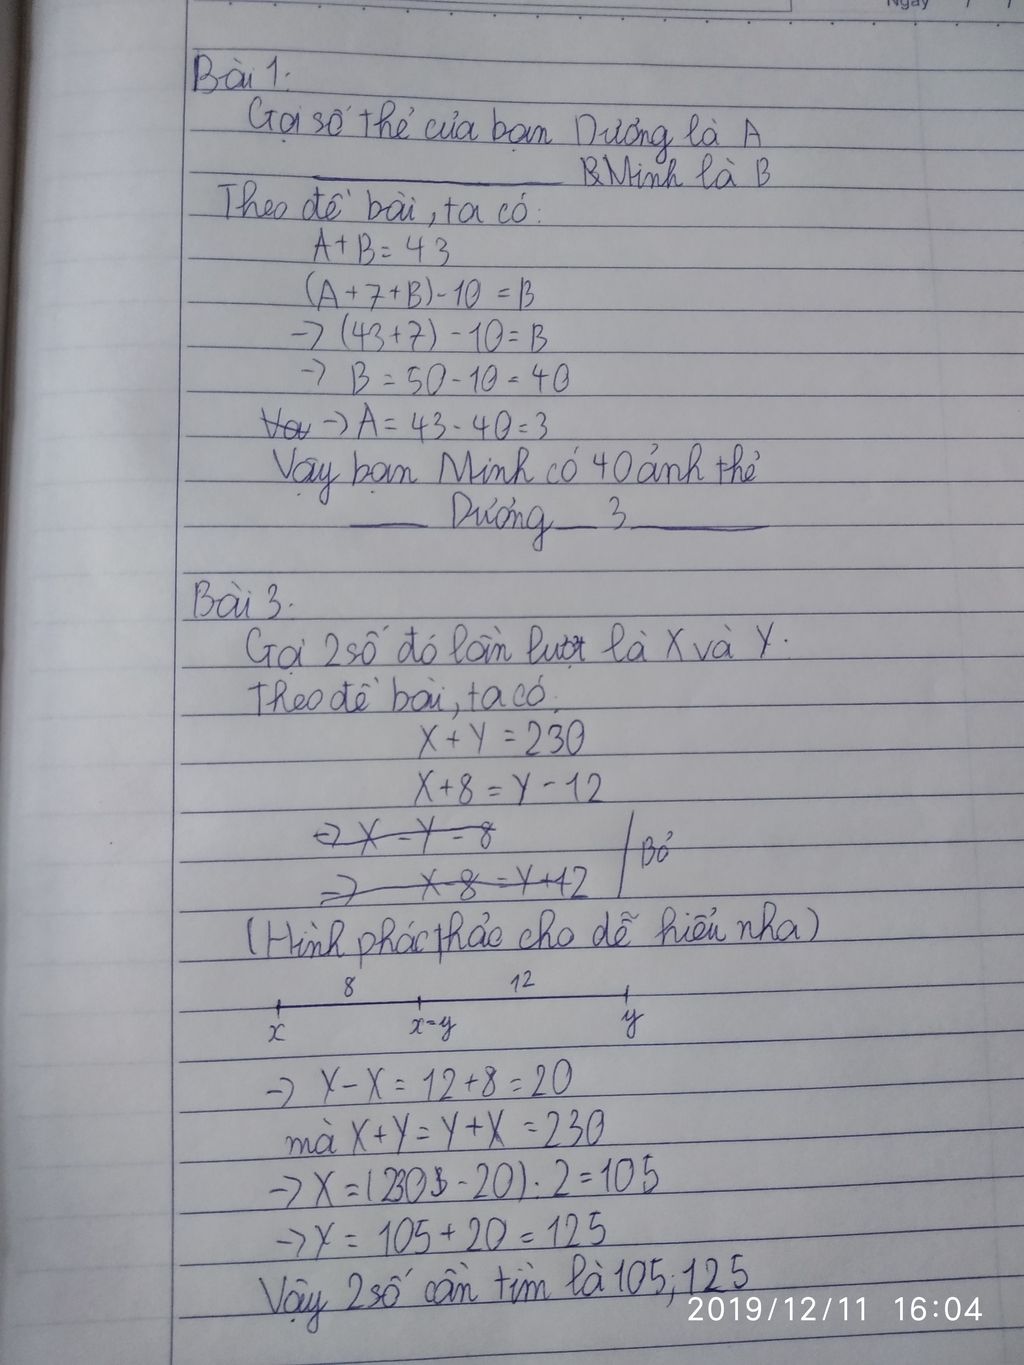 Ngày / /
Bài 1:
Gọi số thẻ của bạn Dương là A
B Minh là B
Theo đề bài, ta có:
A + B = 43
(A + 7 + B) - 10 = B
-> (43 + 7) - 10 = B
-> B = 50 - 10 = 40
Va -> A = 43 - 40 = 3
Vậy bạn Minh có 40 ảnh thẻ
Dương 3
Bài 3:
Gọi 2 số đó lần lượt là X và Y.
Theo đề bài, ta có:
X + Y = 230
X + 8 = Y - 12
=> X = Y - 8
Bỏ
=> X - 8 = Y + 12
(Hình phác thảo cho dễ hiểu nha)
8 12
x x=y y
-> Y - X = 12 + 8 = 20
mà X + Y = Y + X = 230
-> X = (230 - 20) : 2 = 105
-> Y = 105 + 20 = 125
Vậy 2 số cần tìm là 105; 125
2019/12/11 16:04